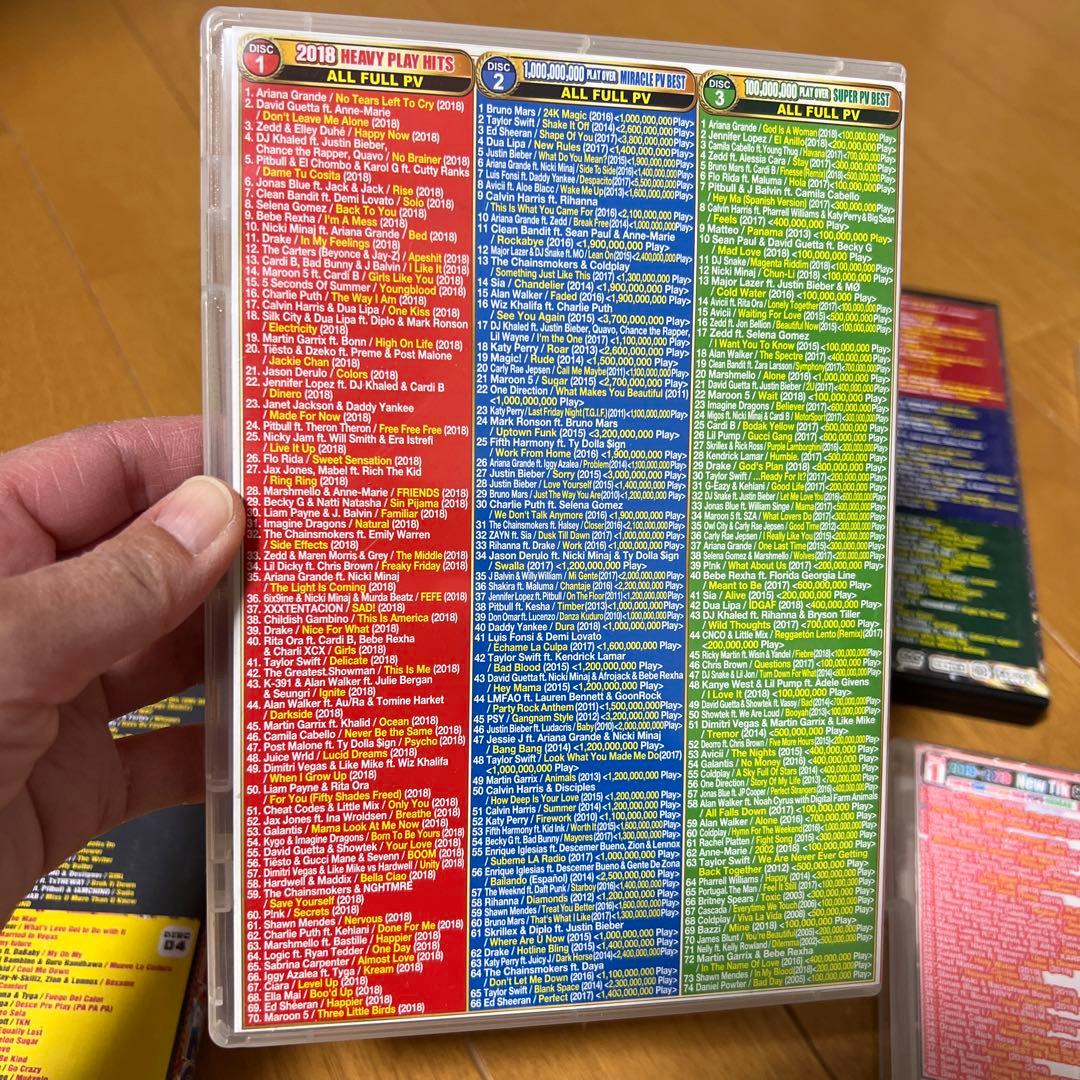 DISC 1
2018 HEAVY PLAY HITS
ALL FULL PV
1. Ariana Grande / No Tears Left To Cry (2018)
2. David Guetta ft. Anne-Marie
/ Don't Leave Me Alone (2018)
3. Zedd & Elley Duhé / Happy Now (2018)
4. DJ Khaled ft. Justin Bieber,
Chance the Rapper, Quavo / No Brainer (2018)
5. Pitbull & El Chombo & Karol G ft. Cutty Ranks
/ Dame Tu Cosita (2018)
6. Jonas Blue ft. Jack & Jack / Rise (2018)
7. Clean Bandit ft. Demi Lovato / Solo (2018)
8. Selena Gomez / Back To You (2018)
9. Bebe Rexha / I'm A Mess (2018)
10. Nicki Minaj ft. Ariana Grande / Bed (2018)
11. Drake / In My Feelings (2018)
12. The Carters (Beyonce & Jay-Z) / Apeshit (2018)
13. Cardi B, Bad Bunny & J Balvin / I Like It (2018)
14. Maroon 5 ft. Cardi B / Girls Like You (2018)
15. 5 Seconds Of Summer / Youngblood (2018)
16. Charlie Puth / The Way I Am (2018)
17. Calvin Harris & Dua Lipa / One Kiss (2018)
18. Silk City & Dua Lipa ft. Diplo & Mark Ronson
/ Electricity (2018)
19. Martin Garrix ft. Bonn / High On Life (2018)
20. Tiësto & Dzeko ft. Preme & Post Malone
/ Jackie Chan (2018)
21. Jason Derulo / Colors (2018)
22. Jennifer Lopez ft. DJ Khaled & Cardi B
/ Dinero (2018)
23. Janet Jackson & Daddy Yankee
/ Made For Now (2018)
24. Pitbull ft. Theron Theron / Free Free Free (2018)
25. Nicky Jam ft. Will Smith & Era Istrefi
/ Live It Up (2018)
26. Flo Rida / Sweet Sensation (2018)
27. Jax Jones, Mabel ft. Rich The Kid
/ Ring Ring (2018)
28. Marshmello & Anne-Marie / FRIENDS (2018)
29. Becky G & Natti Natasha / Sin Pijama (2018)
30. Liam Payne & J. Balvin / Familiar (2018)
31. Imagine Dragons / Natural (2018)
32. The Chainsmokers ft. Emily Warren
/ Side Effects (2018)
33. Zedd & Maren Morris & Grey / The Middle (2018)
34. Lil Dicky ft. Chris Brown / Freaky Friday (2018)
35. Ariana Grande ft. Nicki Minaj
/ The Light Is Coming (2018)
36. 6ix9ine & Nicki Minaj & Murda Beatz / FEFE (2018)
37. XXXTENTACION / SAD! (2018)
38. Childish Gambino / This Is America (2018)
39. Drake / Nice For What (2018)
40. Rita Ora ft. Cardi B, Bebe Rexha
& Charli XCX / Girls (2018)
41. Taylor Swift / Delicate (2018)
42. The Greatest Showman / This Is Me (2018)
43. K-391 & Alan Walker ft. Julie Bergan
& Seungri / Ignite (2018)
44. Alan Walker ft. Au/Ra & Tomine Harket
/ Darkside (2018)
45. Martin Garrix ft. Khalid / Ocean (2018)
46. Camila Cabello / Never Be the Same (2018)
47. Post Malone ft. Ty Dolla $ign / Psycho (2018)
48. Juice Wrld / Lucid Dreams (2018)
49. Dimitri Vegas & Like Mike ft. Wiz Khalifa
/ When I Grow Up (2018)
50. Liam Payne & Rita Ora
/ For You (Fifty Shades Freed) (2018)
51. Cheat Codes & Little Mix / Only You (2018)
52. Jax Jones ft. Ina Wroldsen / Breathe (2018)
53. Galantis / Mama Look At Me Now (2018)
54. Kygo & Imagine Dragons / Born To Be Yours (2018)
55. David Guetta & Showtek / Your Love (2018)
56. Tiësto & Gucci Mane & Sevenn / BOOM (2018)
57. Dimitri Vegas & Like Mike vs Hardwell / Unity (2018)
58. Hardwell & Maddix / Bella Ciao (2018)
59. The Chainsmokers & NGHTMRE
/ Save Yourself (2018)
60. P!nk / Secrets (2018)
61. Shawn Mendes / Nervous (2018)
62. Charlie Puth ft. Kehlani / Done For Me (2018)
63. Marshmello ft. Bastille / Happier (2018)
64. Logic ft. Ryan Tedder / One Day (2018)
65. Sabrina Carpenter / Almost Love (2018)
66. Iggy Azalea ft. Tyga / Kream (2018)
67. Ciara / Level Up (2018)
68. Ella Mai / Boo'd Up (2018)
69. Ed Sheeran / Happier (2018)
70. Maroon 5 / Three Little Birds (2018)
DISC 2
1,000,000,000 PLAY OVER MIRACLE PV BEST
ALL FULL PV
1 Bruno Mars / 24K Magic (2016) <1,000,000,000Play>
2 Taylor Swift / Shake It Off (2014) <2,600,000,000Play>
3 Ed Sheeran / Shape Of You (2017) <3,800,000,000Play>
4 Dua Lipa / New Rules (2017) <1,400,000,000Play>
5 Justin Bieber / What Do You Mean? (2015) <1,900,000,000Play>
6 Ariana Grande ft. Nicki Minaj / Side To Side (2016) <1,400,000,000Play>
7 Luis Fonsi ft. Daddy Yankee / Despacito (2017) <5,500,000,000Play>
8 Avicii ft. Aloe Blacc / Wake Me Up (2013) <1,600,000,000Play>
9 Calvin Harris ft. Rihanna
/ This Is What You Came For (2016) <2,100,000,000Play>
10 Ariana Grande ft. Zedd / Break Free (2014) <1,000,000,000Play>
11 Clean Bandit ft. Sean Paul & Anne-Marie
/ Rockabye (2016) <1,900,000,000Play>
12 Major Lazer & DJ Snake ft. MO / Lean On (2015) <2,400,000,000Play>
13 The Chainsmokers & Coldplay
/ Something Just Like This (2017) <1,300,000,000Play>
14 Sia / Chandelier (2014) <1,900,000,000Play>
15 Alan Walker / Faded (2016) <1,900,000,000Play>
16 Wiz Khalifa ft. Charlie Puth
/ See You Again (2015) <3,700,000,000Play>
17 DJ Khaled ft. Justin Bieber, Quavo, Chance the Rapper,
Lil Wayne / I'm the One (2017) <1,100,000,000Play>
18 Katy Perry / Roar (2013) <2,600,000,000Play>
19 Magic! / Rude (2014) <1,500,000,000Play>
20 Carly Rae Jepsen / Call Me Maybe (2011) <1,100,000,000Play>
21 Maroon 5 / Sugar (2015) <2,700,000,000Play>
22 One Direction / What Makes You Beautiful (2011)
<1,000,000,000Play>
23 Katy Perry / Last Friday Night (T.G.I.F.) (2011) <1,100,000,000Play>
24 Mark Ronson ft. Bruno Mars
/ Uptown Funk (2015) <3,200,000,000 Play>
25 Fifth Harmony ft. Ty Dolla $ign
/ Work From Home (2016) <1,900,000,000 Play>
26 Ariana Grande ft. Iggy Azalea / Problem (2014) <1,100,000,000Play>
27 Justin Bieber / Sorry (2015) <3,000,000,000 Play>
28 Justin Bieber / Love Yourself (2015) <1,400,000,000Play>
29 Bruno Mars / Just The Way You Are (2010) <1,200,000,000Play>
30 Charlie Puth ft. Selena Gomez
/ We Don't Talk Anymore (2016) <1,900,000,000 Play>
31 The Chainsmokers ft. Halsey / Closer (2016) <2,100,000,000Play>
32 ZAYN ft. Sia / Dusk Till Dawn (2017) <1,000,000,000Play>
33 Rihanna ft. Drake / Work (2016) <1,000,000,000Play>
34 Jason Derulo ft. Nicki Minaj & Ty Dolla $ign
/ Swalla (2017) <1,200,000,000Play>
35 J Balvin & Willy William / Mi Gente (2017) <2,000,000,000Play>
36 Shakira ft. Maluma / Chantaje (2016) <2,200,000,000Play>
37 Jennifer Lopez ft. Pitbull / On The Floor (2011) <1,200,000,000Play>
38 Pitbull ft. Kesha / Timber (2013) <1,000,000,000Play>
39 Don Omar ft. Lucenzo / Danza Kuduro (2010) <1,000,000,000Play>
40 Daddy Yankee / Dura (2018) <1,000,000,000 Play>
41 Luis Fonsi & Demi Lovato
/ Échame La Culpa (2017) <1,600,000,000 Play>
42 Taylor Swift ft. Kendrick Lamar
/ Bad Blood (2015) <1,200,000,000 Play>
43 David Guetta ft. Nicki Minaj & Afrojack & Bebe Rexha
/ Hey Mama (2015) <1,200,000,000 Play>
44 LMFAO ft. Lauren Bennett & GoonRock
/ Party Rock Anthem (2011) <1,500,000,000 Play>
45 PSY / Gangnam Style (2012) <3,200,000,000Play>
46 Justin Bieber ft. Ludacris / Baby (2010) <2,000,000,000Play>
47 Jessie J Ariana Grande & Nicki Minaj
/ Bang Bang (2014) <1,200,000,000Play>
48 Taylor Swift / Look What You Made Me Do (2017)
<1,000,000,000Play>
49 Martin Garrix / Animals (2013) <1,200,000,000Play>
50 Calvin Harris & Disciples
/ How Deep Is Your Love (2015) <1,200,000,000Play>
51 Calvin Harris / Summer (2014) <1,200,000,000Play>
52 Katy Perry / Firework (2010) <1,100,000,000Play>
53 Fifth Harmony ft. Kid Ink / Worth It (2015) <1,600,000,000Play>
54 Becky G ft. Bad Bunny / Mayores (2017) <1,300,000,000Play>
55 Enrique Iglesias ft. Descemer Bueno, Zion & Lennox
/ Subeme LA Radio (2017) <1,000,000,000Play>
56 Enrique Iglesias ft. Descemer Bueno & Gente De Zona
/ Bailando (Español) (2014) <2,500,000,000Play>
57 The Weeknd ft. Daft Punk / Starboy (2016) <1,400,000,000Play>
58 Rihanna / Diamonds (2012) <1,200,000,000Play>
59 Shawn Mendes / Treat You Better (2016) <1,600,000,000Play>
60 Bruno Mars / That's What I Like (2017) <1,300,000,000Play>
61 Skrillex & Diplo ft. Justin Bieber
/ Where Are Ü Now (2015) <1,000,000,000Play>
62 Drake / Hotline Bling (2015) <1,400,000,000Play>
63 Katy Perry ft. Juicy J / Dark Horse (2014) <2,400,000,000Play>
64 The Chainsmokers ft. Daya
/ Don't Let Me Down (2016) <1,100,000,000Play>
65 Taylor Swift / Blank Space (2014) <2,300,000,000Play>
66 Ed Sheeran / Perfect (2017) <1,400,000,000Play>
DISC 3
100,000,000 PLAY OVER SUPER PV BEST
ALL FULL PV
1 Ariana Grande / God Is A Woman (2018) <100,000,000Play>
2 Jennifer Lopez / El Anillo (2018) <200,000,000Play>
3 Camila Cabello ft. Young Thug / Havana (2017) <700,000,000Play>
4 Zedd ft. Alessia Cara / Stay (2017) <300,000,000Play>
5 Bruno Mars ft. Cardi B / Finesse (Remix) (2018) <500,000,000Play>
6 Flo Rida ft. Maluma / Hola (2017) <100,000,000Play>
7 Pitbull & J Balvin ft. Camila Cabello
/ Hey Ma (Spanish Version) (2017) <300,000,000Play>
8 Calvin Harris ft. Pharrell Williams & Katy Perry & Big Sean
/ Feels (2017) <400,000,000Play>
9 Matteo / Panama (2013) <100,000,000Play>
10 Sean Paul & David Guetta ft. Becky G
/ Mad Love (2018) <100,000,000Play>
11 DJ Snake / Magenta Riddim (2018) <100,000,000Play>
12 Nicki Minaj / Chun-Li (2018) <100,000,000Play>
13 Major Lazer ft. Justin Bieber & MØ
/ Cold Water (2016) <100,000,000Play>
14 Avicii ft. Rita Ora / Lonely Together (2017) <100,000,000Play>
15 Avicii / Waiting For Love (2015) <500,000,000Play>
16 Zedd ft. Jon Bellion / Beautiful Now (2015) <100,000,000Play>
17 Zedd ft. Selena Gomez
/ I Want You To Know (2015) <100,000,000Play>
18 Alan Walker / The Spectre (2017) <400,000,000Play>
19 Clean Bandit ft. Zara Larsson / Symphony (2017) <700,000,000Play>
20 Marshmello / Alone (2016) <1,000,000,000Play>
21 David Guetta ft. Justin Bieber / 2U (2017) <400,000,000Play>
22 Maroon 5 / Wait (2018) <100,000,000Play>
23 Imagine Dragons / Believer (2017) <600,000,000Play>
24 Migos ft. Nicki Minaj & Cardi B / MotorSport (2017)
25 Cardi B / Bodak Yellow (2017) <600,000,000Play>
26 Lil Pump / Gucci Gang (2017) <800,000,000Play>
27 Skrillex & Rick Ross / Purple Lamborghini (2016) <300,000,000Play>
28 Kendrick Lamar / Humble. (2017) <500,000,000Play>
29 Drake / God's Plan (2018) <800,000,000Play>
30 Taylor Swift / ...Ready For It? (2017) <200,000,000Play>
31 G-Eazy & Kehlani / Good Life (2017) <200,000,000Play>
32 DJ Snake ft. Justin Bieber / Let Me Love You (2016)
33 Jonas Blue ft. William Singe / Mama (2017)
34 Maroon 5 ft. SZA / What Lovers Do (2017)
35 Owl City and Carly Rae Jepsen / Good Time (2012)
36 Carly Rae Jepsen / I Really Like You (2015)
37 Ariana Grande / One Last Time (2015)
38 Selena Gomez & Marshmello / Wolves (2017)
39 P!nk / What About Us (2017) <200,000,000Play>
40 Bebe Rexha ft. Florida Georgia Line
/ Meant to Be (2017) <600,000,000Play>
41 Sia / Alive (2015) <200,000,000Play>
42 Dua Lipa / IDGAF (2018) <400,000,000Play>
43 DJ Khaled ft. Rihanna & Bryson Tiller
/ Wild Thoughts (2017) <700,000,000Play>
44 CNCO & Little Mix / Reggaetón Lento (Remix) (2017)
<200,000,000Play>
45 Ricky Martin ft. Wisin & Yandel / Fiebre (2018) <100,000,000Play>
46 Chris Brown / Questions (2017) <100,000,000Play>
47 DJ Snake & Lil Jon / Turn Down For What (2014)
48 Kanye West & Lil Pump ft. Adele Givens
/ I Love It (2018) <100,000,000Play>
49 David Guetta & Showtek ft. Vassy / Bad (2014)
50 Showtek ft. We Are Loud / Booyah (2013)
51 Dimitri Vegas & Martin Garrix & Like Mike
/ Tremor (2014) <500,000,000Play>
52 Deorro ft. Chris Brown / Five More Hours (2015)
53 Avicii / The Nights (2015) <400,000,000Play>
54 Galantis / No Money (2016) <200,000,000Play>
55 Coldplay / A Sky Full Of Stars (2014)
56 One Direction / Story Of My Life (2013)
57 Jonas Blue ft. JP Cooper / Perfect Strangers (2016)
58 Alan Walker ft. Noah Cyrus with Digital Farm Animals
/ All Falls Down (2017) <100,000,000Play>
59 Alan Walker / Alone (2016) <700,000,000Play>
60 Coldplay / Hymn For The Weekend (2016)
61 Rachel Platten / Fight Song (2015)
62 Anne-Marie / 2002 (2018) <100,000,000Play>
63 Taylor Swift / We Are Never Ever Getting
Back Together (2012) <500,000,000Play>
64 Pharrell Williams / Happy (2014)
65 Portugal.The Man / Feel It Still (2017)
66 Britney Spears / Toxic (2003)
67 Cascada / Everytime We Touch (2006)
68 Coldplay / Viva La Vida (2008)
69 Bazzi / Mine (2018) <100,000,000Play>
70 James Blunt / You're Beautiful (2005)
71 Nelly ft. Kelly Rowland / Dilemma (2002)
72 Martin Garrix & Bebe Rexha
/ In The Name Of Love (2016)
73 Shawn Mendes / In My Blood (2018)
74 Daniel Powter / Bad Day (2005)
DISC 04